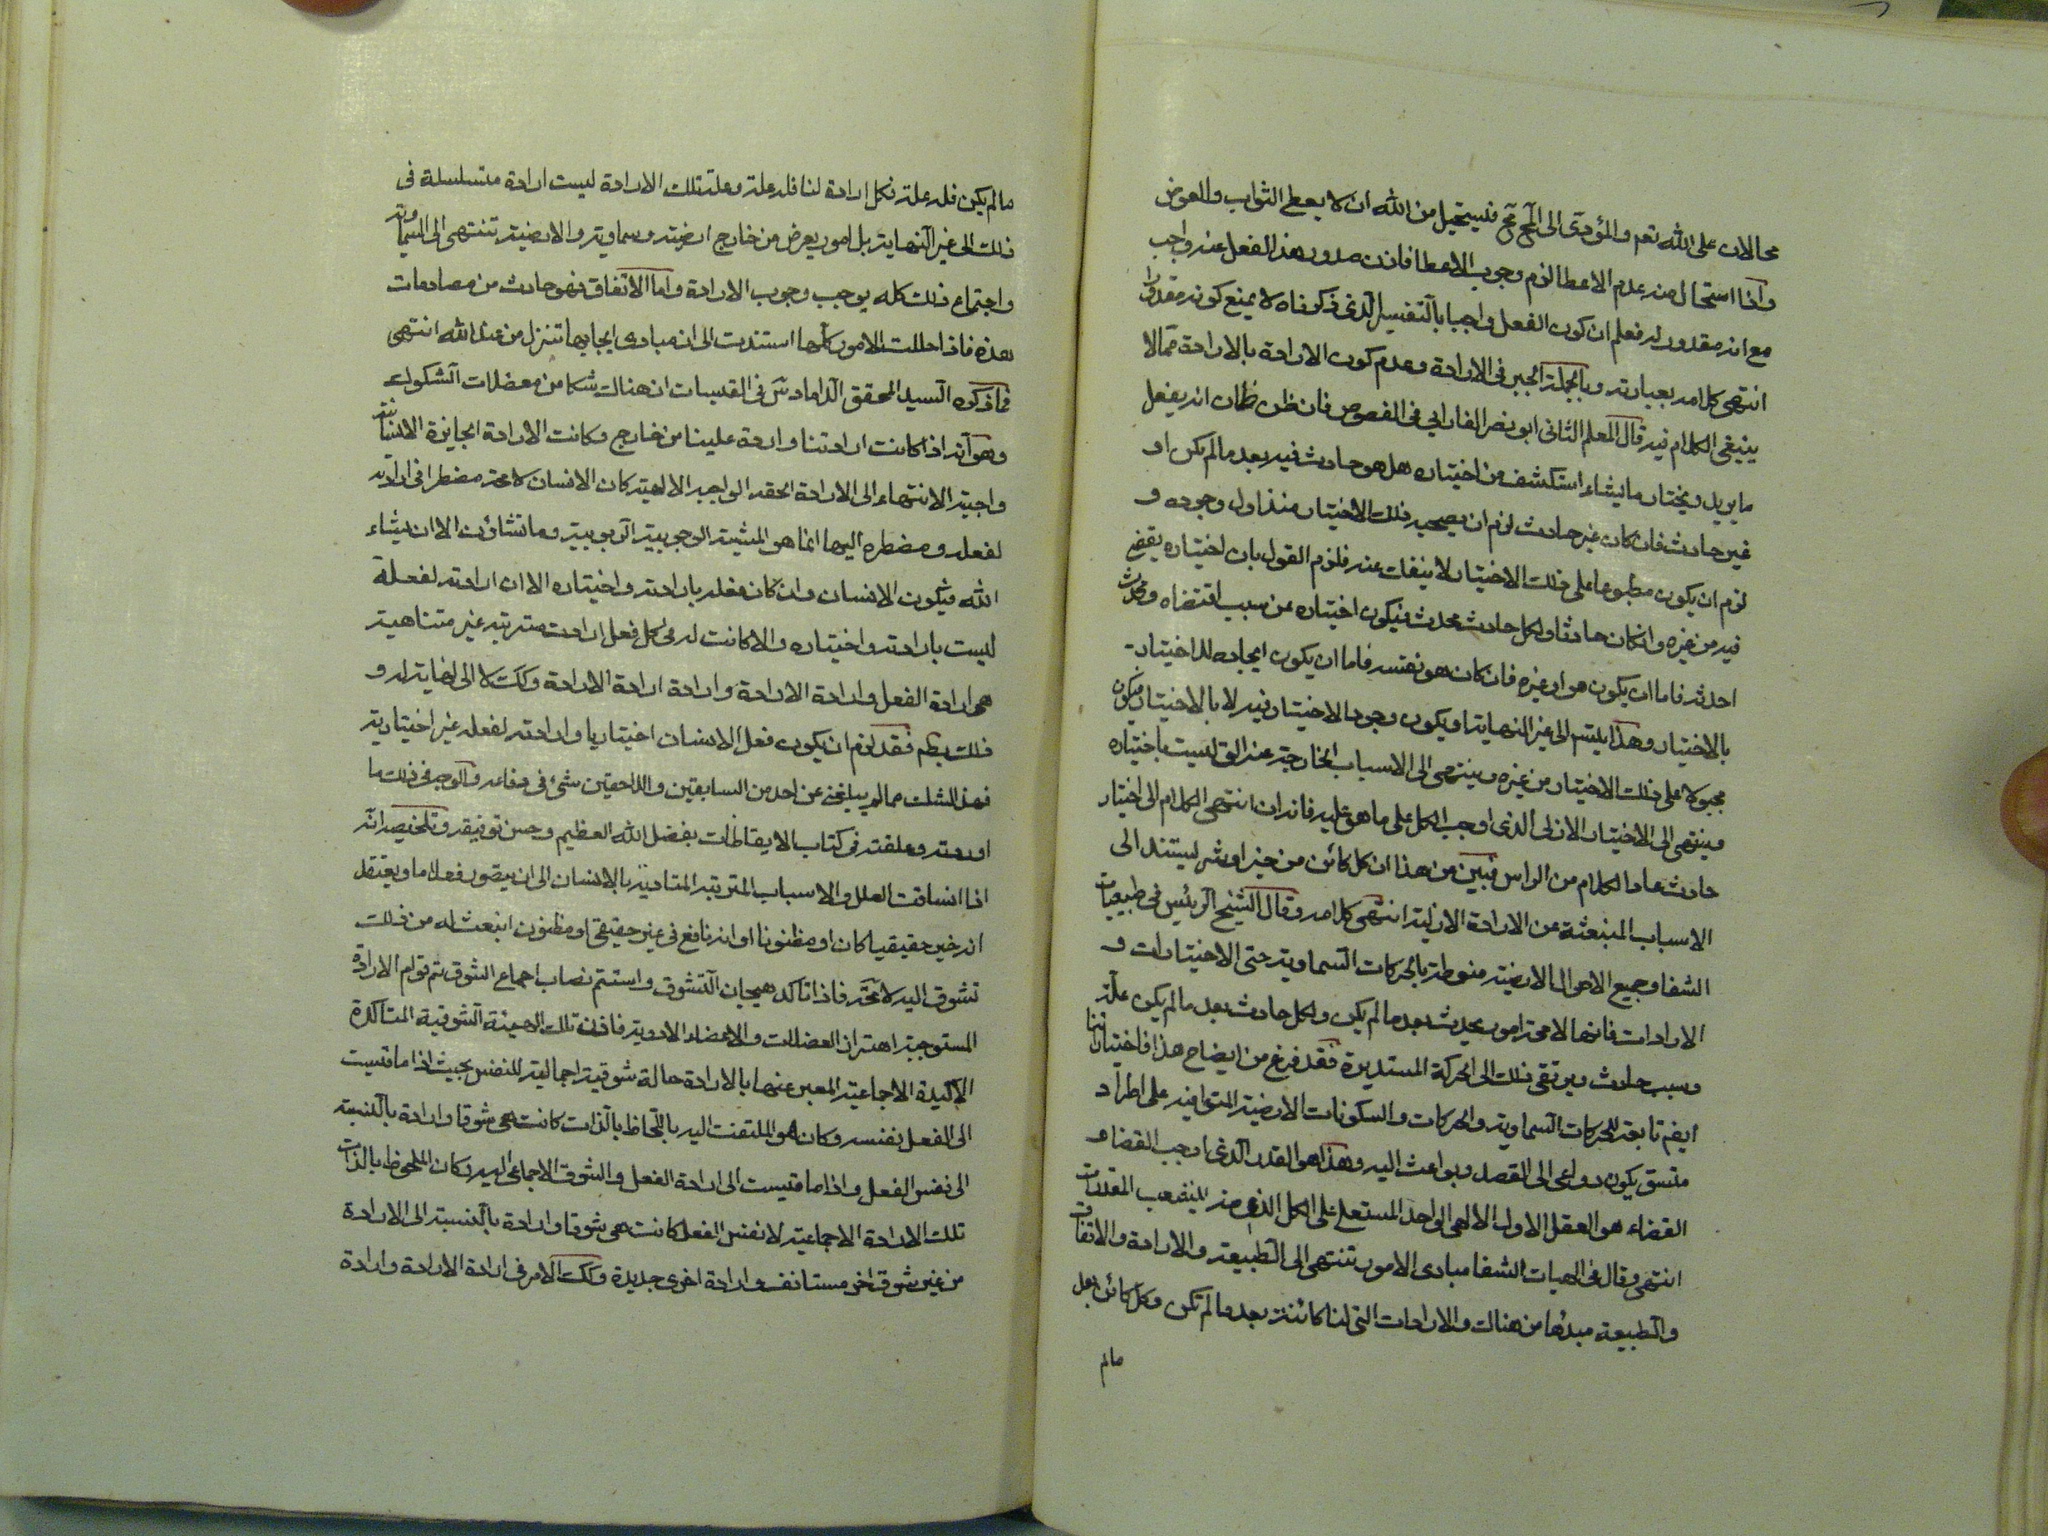 محالان على الله تعم والمؤدى الى المح مح فيستحيل من الله ان لا يعطى الثواب والعوض
واذا استحال منه عدم الاعطا لزم وجوب الاعطا فاذن صدور هذا الفعل عنه واجب
مع انه مقدور له فعلم ان كون الفعل واجبا بالتفسير الذى ذكرناه لا يمنع كونه مقدورا
انتهى كلامه بعبارته وبالجملة الجبر فى الارادة وعدم كون الارادة بالارادة مما لا
ينبغى الكلام فيه قال المعلم الثانى ابو نصر الفارابى فى الفصوص فان ظن ظان انه يفعل
ما يريد ويختار ما يشاء استكشف من اختياره هل هو حادث فيه بعد ما لم يكن او
غير حادث فان كان غير حادث لزم ان يصحبه ذلك الاختيار منذ اول وجوده و
لزم ان يكون مطبوعا على ذلك الاختيار لا ينفك عنه فلزم القول بان اختياره يقتضى
فيه من غيره وان كان حادثا ولكل حادث محدث فيكون اختياره عن سبب اقتضاه ومحدث
احدثه فاما ان يكون هو او غيره فان كان هو نفسه فاما ان يكون ايجاده للاختيار
بالاختيار وهذا يتسلسل الى غير النهاية او يكون وجود الاختيار فيه لا بالاختيار فيكون
مجبولا على ذلك الاختيار من غيره وينتهى الى الاسباب الخارجة عنه التى ليست باختياره
فينتهى الى الاختيار الازلى الذى اوجب الكل على ما هو عليه فانه ان انتهى الكلام الى اختيار
حادث عاد الكلام من الراس فتبين من هذا ان كل كائن من خير او شر يستند الى
الاسباب المنبعثة من الارادة الازلية انتهى كلامه وقال الشيخ الرئيس فى طبيعيات
الشفا وجميع الاحوال الارضية منوطة بالحركات السماوية حتى الاختيارات و
الارادات فانها لا محة امور يحدث بعد ما لم يكن ولكل حادث بعد ما لم يكن علة
وسبب حادث ويرتقى ذلك الى الحركة المستديرة فقد فرغ من ايضاح هذا فاختياراتنا
ايضم تابعة للحركات السماوية والحركات والسكونات الارضية المتوافية على اطراد
متسق يكون دواعى الى القصد وبواعث اليه وهذا هو القدر الذى اوجب القضا و
القضاء هو العقل الاول الالهى الواحد المستعلى على الكل الذى منه ينشعب المقدرات
انتهى وقال فى الهيات الشفا مبادى الامور تنتهى الى الطبيعة والارادة والاتفاق
والطبيعة مبدئها من هناك والارادات التى لنا كائنة بعد ما لم تكن وكل كائن بعد
مالم
مالم يكن فله علة فكل ارادة لنا فله علة وعلة تلك الارادة ليست ارادة متسلسلة فى
ذلك الى غير النهاية بل امور يعرض من خارج ارضية وسماوية والارضية تنتهى الى السماوية
واجتماع ذلك كله يوجب وجوب الارادة واما الاتفاق فهو حادث من مصادمات
هذه فاذا حللت الامور كلها استندت الى ان مبادى ايجابها تنزل من عند الله انتهى
فما ذكره السيد المحقق الداماد س فى القبسات ان هناك شكا من معضلات الشكوك
وهو انه اذا كانت ارادتنا واردة علينا من خارج وكانت الارادة الجايزة الانسانية
واجبة الانتهاء الى الارادة الحقة الواجبة الالهية كان الانسان لا محة مضطرا فى ارادته
لفعله ومضطره اليها انما هو المشية الوجوبية الربوبية وما تشاؤن الا ان يشاء
الله فيكون الانسان وان كان فعله بارادته واختياره الا ان ارادته لفعله
ليست بارادته واختياره والا كانت له فى كل فعل ارادات مترتبة غير متناهية
هى ارادة الفعل وارادة الارادة وارادة ارادة الارادة وكك لا الى نهاية له و
ذلك بطم فقد لزم ان يكون فعل الانسان اختياريا وارادته لفعله غير اختيارية
فهذا الشك مما لم يبلغنى عن احد من السابقين واللاحقين شئ فى دفاعه والوجه فى ذلك ما
اوردته وعلقته فى كتاب الايقاظات بفضل الله العظيم وحسن توفيقه وتلخيصه انه
اذا انساقت العلل والاسباب المترتبة المتادية بالانسان الى ان يتصور فعلا ما ويعتقد
انه خير حقيقيا كان او مظنونا او انه نافع فى خير حقيقى او مظنون انبعث له من ذلك
تشوق اليه لا محة فاذا تاكد هيجان التشوق واستتم نصاب اجماع الشوق تم قوام الارادة
المستوجبة اهتزاز العضلات والاعضاء الادوية فاذن تلك الهيئة الشوقية المتاكدة
الاكيدة الاجماعية المعبر عنها بالارادة حالة شوقية اجمالية للنفس بحيث اذا ما قيست
الى الفعل نفسه وكان هو الملتفت اليه باللحاظ بالذات كانت هى شوقا وارادة بالنسبة
الى نفس الفعل واذا ما قيست الى ارادة الفعل والشوق الاجماعى اليه وكان الملحوظ بالذات
تلك الارادة الاجماعية لا نفس الفعل كانت هى شوقا وارادة بالنسبة الى الارادة
من غير شوق اخر مستانف وارادة اخرى جديدة وكك الامر فى ارادة الارادة وارادة